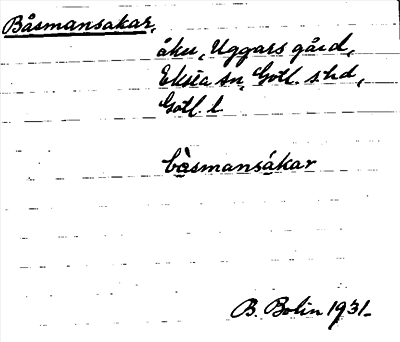 Båsmansakar,
åker, Uggårs gård,
Eksta sn, Gotl. s. hd,
Gotl. l.
bàsmansákar
B. Bolin 1931.